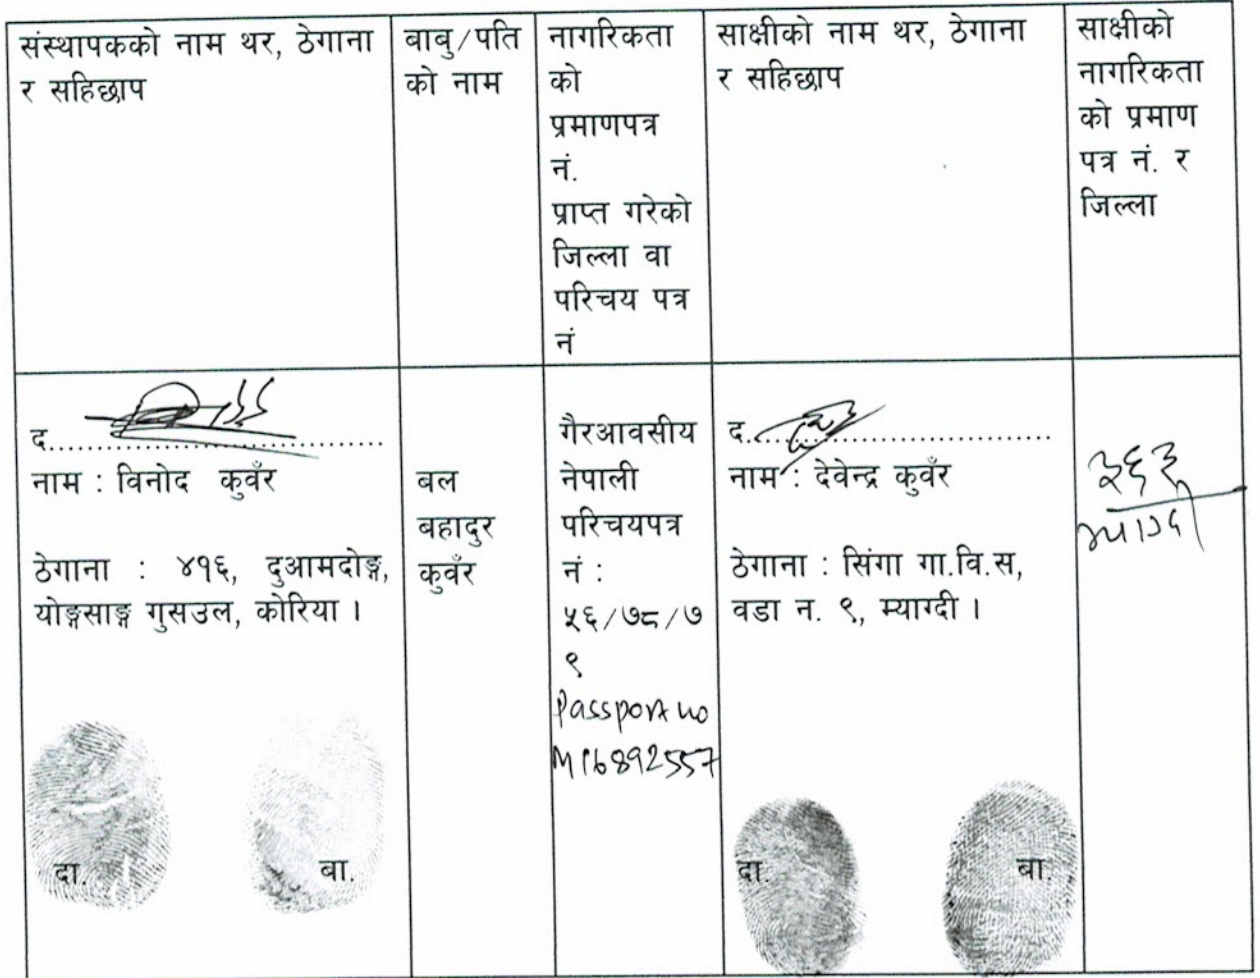 संस्थापकको नाम थर, ठेगाना
र सहिछाप
बाबु/पति
को नाम
नागरिकता
को
प्रमाणपत्र
नं.
प्राप्त गरेको
जिल्ला वा
परिचय पत्र
नं
साक्षीको नाम थर, ठेगाना
र सहिछाप
साक्षीको
नागरिकता
को प्रमाण
पत्र नं. र
जिल्ला
द.......................................
नाम : विनोद कुवँर
ठेगाना : ४१६, दुआमदोङ्ग,
योङ्गसाङ्ग गुसउल, कोरिया ।
दा.
बा.
बल
बहादुर
कुवँर
गैरआवसीय
नेपाली
परिचयपत्र
नं :
५६/७८/७
९
Passport no
M16892557
द.......................................
नाम : देवेन्द्र कुवँर
ठेगाना : सिंगा गा.वि.स,
वडा न. ९, म्याग्दी ।
दा.
बा.
३६३
म्याग्दी